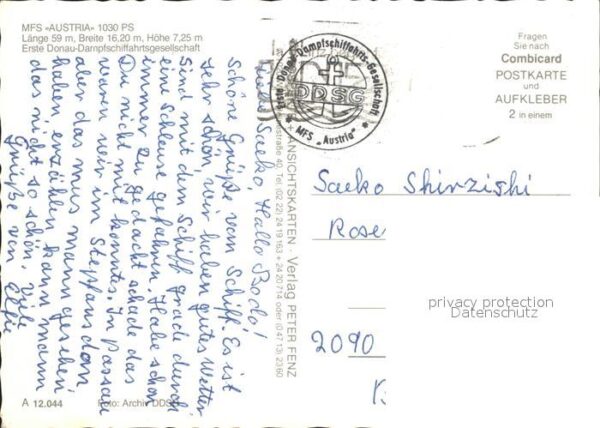 MFS «AUSTRIA» 1030 PS
Länge 59 m, Breite 16,20 m, Höhe 7,25 m
Erste Donau-Dampfschiffahrtsgesellschaft
Liebe Saeko, Hallo Bodo!
Schöne Grüße vom Schiff. Es ist
sehr schön, wir haben gutes Wetter
sind mit dem Schiff grade durch
eine Schleuse gefahren. Habe schon
immer zu gedacht schade das
Du nicht mit konntes. In Passau
waren wir im Stepfansdom
aber das mus mann gesehen
haben erzählen kann mann
das nicht so schön. Viele
Grüße von
A 12.044
Foto: Archiv DDSG
ANSICHTSKARTEN · Verlag PETER FENZ
40, Tel. (02 22) 24 19 163 + 24 20 714 oder (0 47 13) 23 60
Erste Donau-Dampfschiffahrts-Gesellschaft
DDSG
* MFS „Austria" *
Fragen
Sie nach
Combicard
POSTKARTE
und
AUFKLEBER
2 in einem
Saeko Shirzishi
Rose
2090
K
privacy protection
Datenschutz